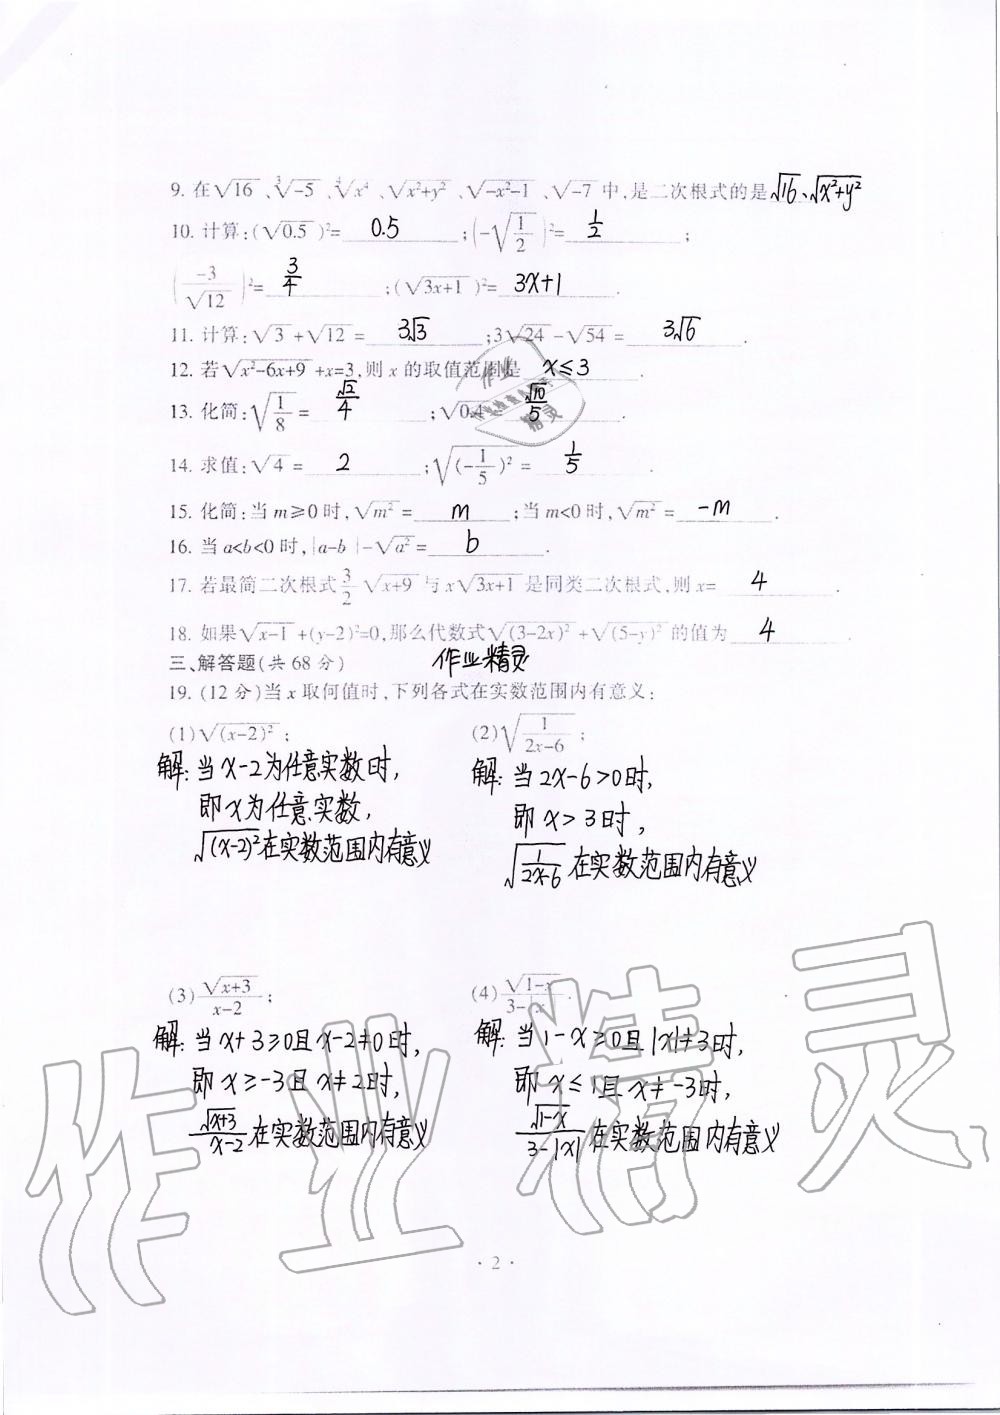 9. 在√16、∛-5、∜x⁴、√x²+y²、√-x²-1、√-7中,是二次根式的是 √16、√x²+y²
10. 计算:(√0.5)²= 0.5 ;(-√1/2)²= 1/2 ;
(-3/√12)²= 3/4 ;(√3x+1)²= 3x+1 .
11. 计算:√3+√12= 3√3 ;3√24-√54= 3√6 .
12. 若√x²-6x+9+x=3,则 x 的取值范围是 x≤3 .
13. 化简:√1/8= √2/4 ;√0.4= √10/5 .
14. 求值:√4= 2 ;√(-1/5)²= 1/5 .
15. 化简:当 m≥0 时,√m²= m ;当 m<0 时,√m²= -m .
16. 当 a<b<0 时,|a-b|-√a²= b .
17. 若最简二次根式3/2√x+9与x√3x+1是同类二次根式,则 x= 4 .
18. 如果√x-1+(y-2)²=0,那么代数式√(3-2x)²+√(5-y)²的值为 4 .
三、解答题(共 68 分) 作业精灵
19. (12 分)当 x 取何值时,下列各式在实数范围内有意义:
(1)√(x-2)²; (2)√1/2x-6;
解:当x-2为任意实数时, 解:当2x-6>0时,
即x为任意实数, 即x>3时,
√(x-2)²在实数范围内有意义 √1/2x-6在实数范围内有意义
(3)√x+3/x-2; (4)√1-x/3-|x|.
解:当x+3≥0且x-2≠0时, 解:当1-x≥0且|x|≠3时,
即x≥-3且x≠2时, 即x≤1且x≠-3时,
√x+3/x-2在实数范围内有意义 √1-x/3-|x|在实数范围内有意义
作业精灵
· 2 ·